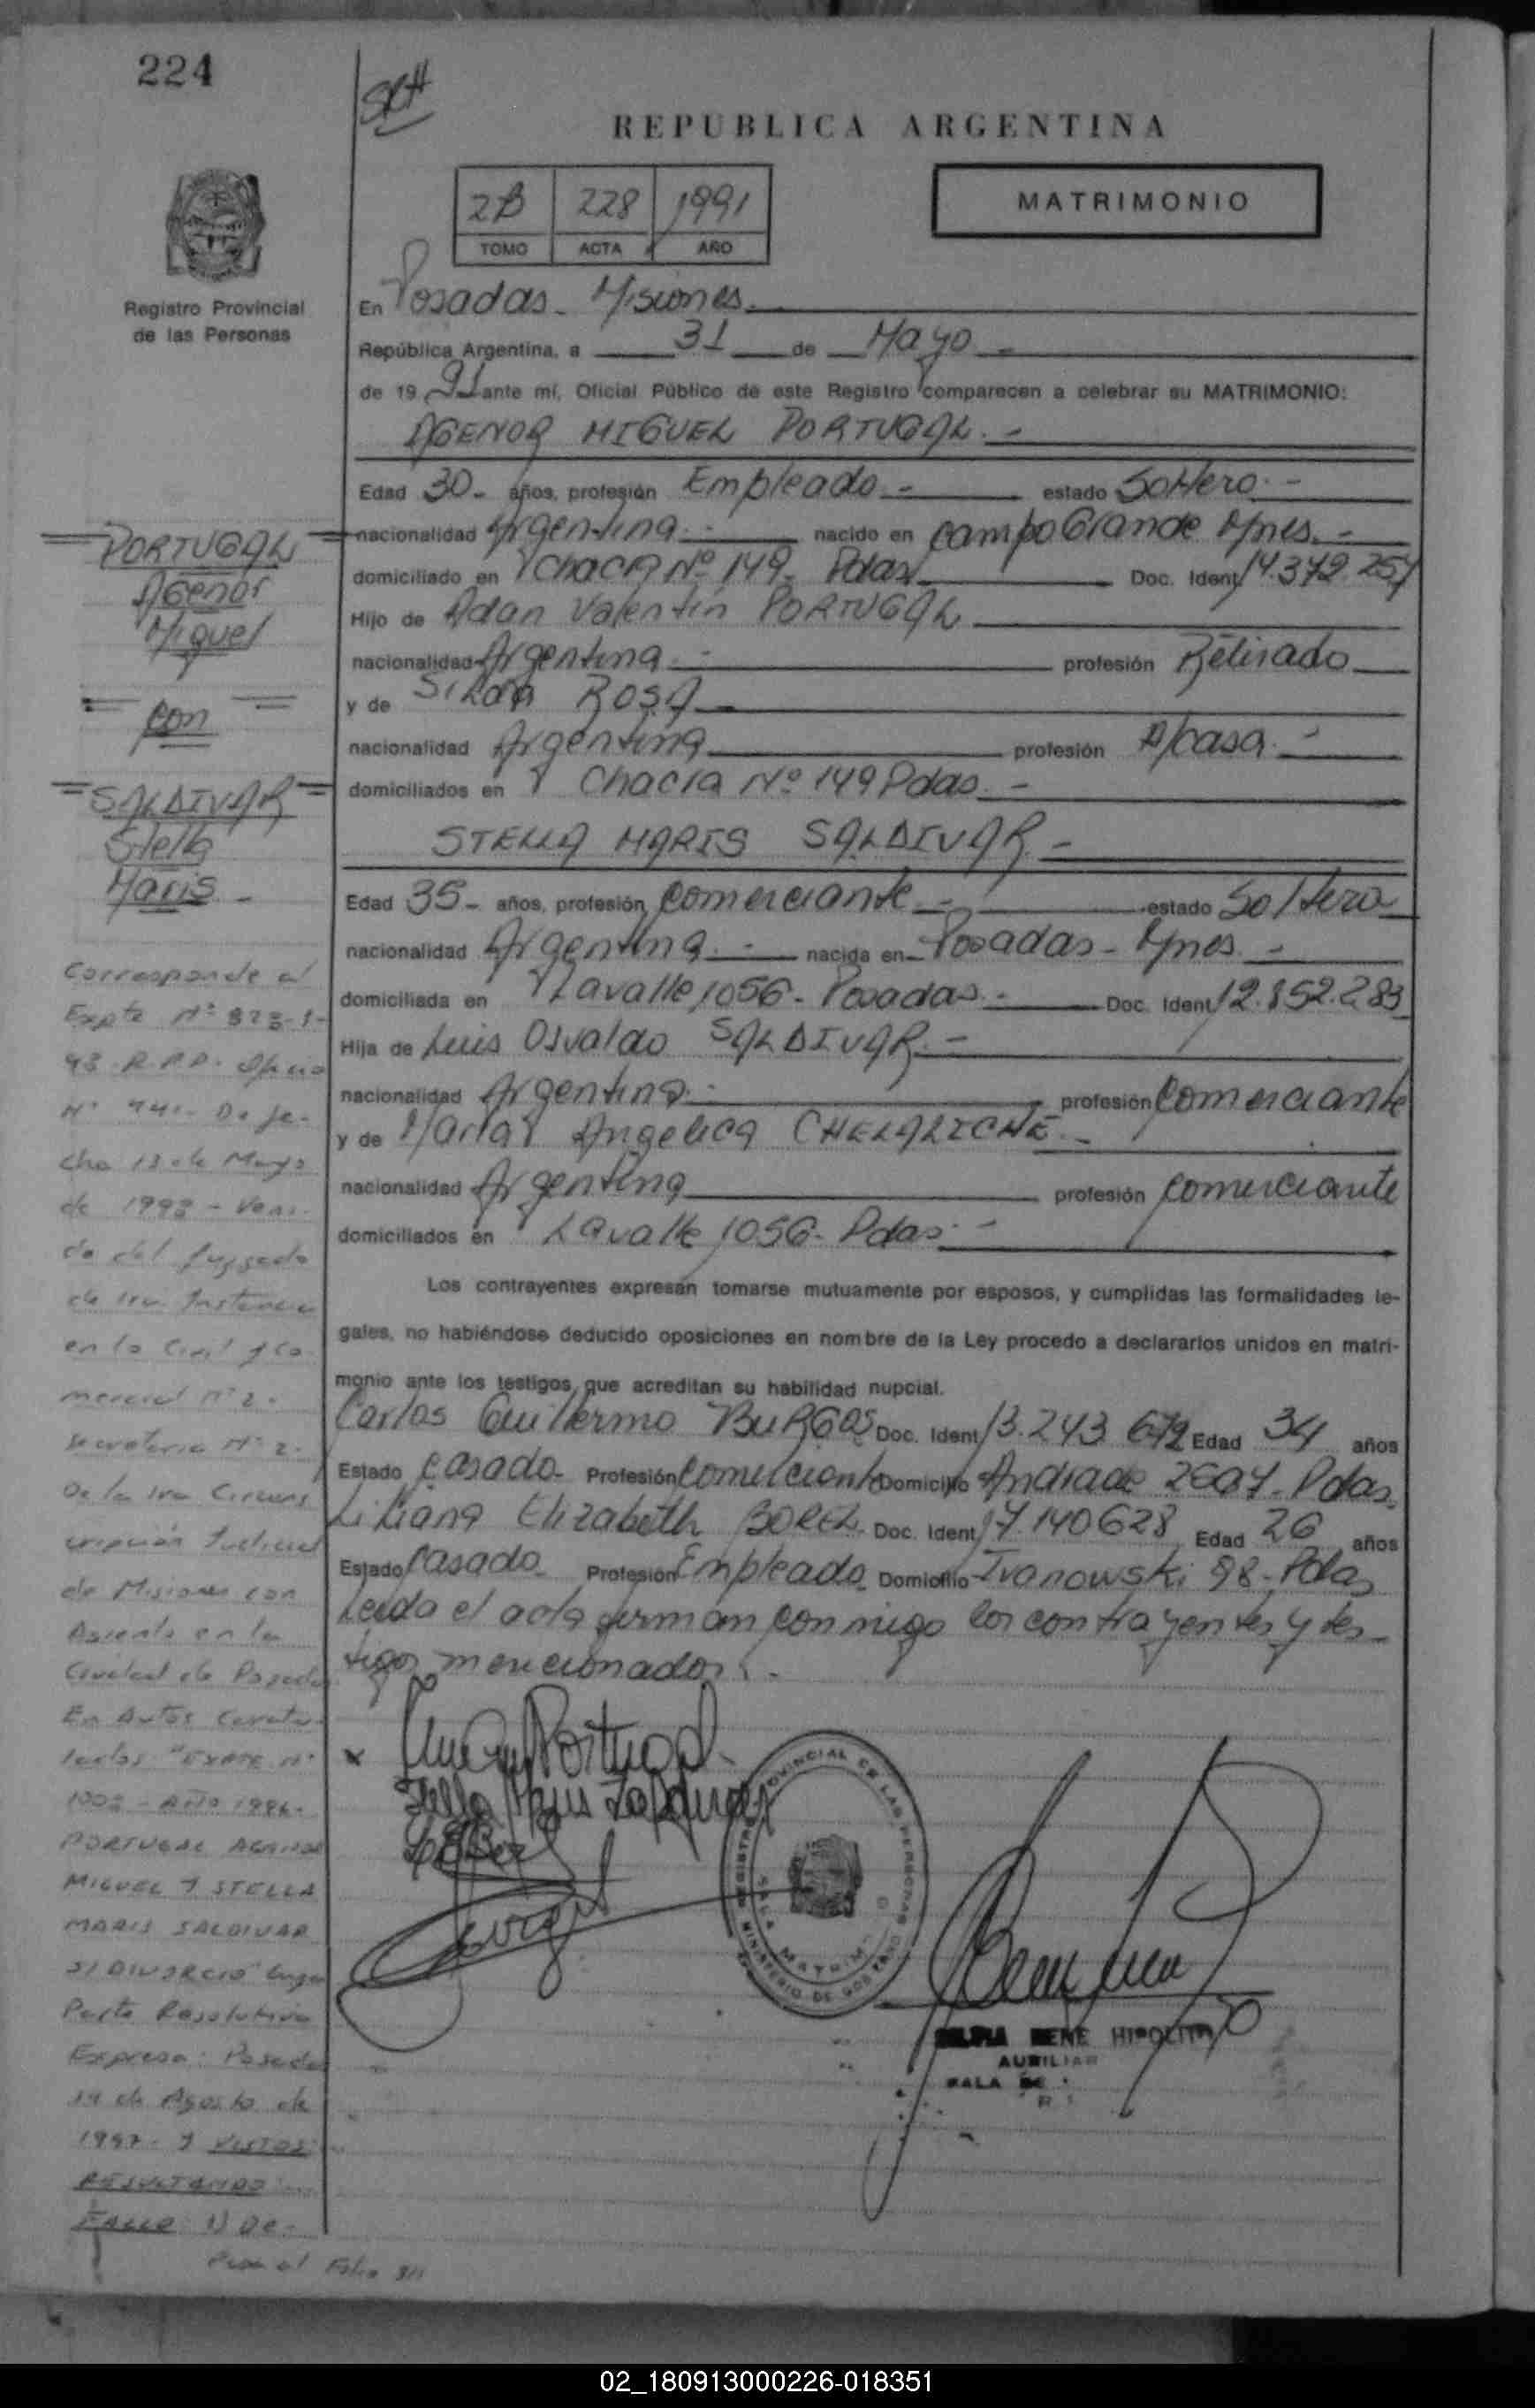 224
SCH
REPUBLICA ARGENTINA
2B 228 1991
TOMO ACTA AÑO
MATRIMONIO
Registro Provincial
de las Personas
En Posadas - Misiones.
República Argentina, a 31 de Mayo -
de 19 91 ante mí, Oficial Público de este Registro comparecen a celebrar su MATRIMONIO:
AGENOR MIGUEL PORTUGAL. -
Edad 30 - años, profesión Empleado - estado Soltero. -
nacionalidad Argentina. - nacido en Campo Grande Mnes. -
domiciliado en Chacra Nº 149 - Pdas. Doc. Ident. 14.372.257
Hijo de Adan Valentín PORTUGAL
nacionalidad Argentina. - profesión Retirado
y de ROSA
nacionalidad Argentina profesión A/casa. -
domiciliados en Chacra Nº 149 Pdas. -
STELLA MARIS SALDIVAR. -
Edad 35 - años, profesión Comerciante - estado Soltera
nacionalidad Argentina. - nacida en Posadas - Mnes. -
domiciliada en Lavalle 1056 - Posadas. - Doc. Ident. 12.852.283
Hija de Luis Osvaldo SALDIVAR. -
nacionalidad Argentina. - profesión Comerciante
y de María Angelica CHELALICHE. -
nacionalidad Argentina profesión Comerciante
domiciliados en Lavalle 1056 - Pdas. -
Los contrayentes expresan tomarse mutuamente por esposos, y cumplidas las formalidades le-
gales, no habiéndose deducido oposiciones en nombre de la Ley procedo a declararlos unidos en matri-
monio ante los testigos que acreditan su habilidad nupcial.
Carlos Guillermo BURGOS Doc. Ident. 13.243 672 Edad 34 años
Estado Casado - Profesión Comerciante Domicilio Andrade - Pdas.
Liliana Elizabeth BOREL - Doc. Ident. 17.140628 Edad 26 años
Estado Casado - Profesión Empleado Domicilio Ivanowski 98 - Pdas
Leida el acta firman conmigo los contrayentes y tes-
tigos mencionados. -
PORTUGAL
Agenor
Miguel
con
SALDIVAR
Stella
Maris -
Corresponde al
Expte Nº
93 - R.P.P. Oficio
Nº De fe-
cha 13 de Mayo
de 1998 - Veni-
do del Juzgado
de 1ra. Instancia
en lo Civil y Co-
mercial Nº 2 -
Secretaria Nº 2 -
De la 1ra Circuns
cripción Judicial
de Misiones con
Asiento en la
Ciudad de Posadas
En Autos Caratu-
lados: "EXPTE Nº
AÑO 1996 -
PORTUGAL AGENOR
MIGUEL Y STELLA
MARIS SALDIVAR
S/ DIVORCIO" cuya
Parte Resolutiva
Expresa: Posadas
de Agosto de
1997 - Y VISTOS:
RESULTANDO:
FALLO: 1) De-
Pasa al Folio
REGISTRO PROVINCIAL DE LAS PERSONAS
MINISTERIO DE GOBIERNO
SALA MATRIM
RENE HIPOLITO
AUXILIAR
SALA DE
02_180913000226-018351